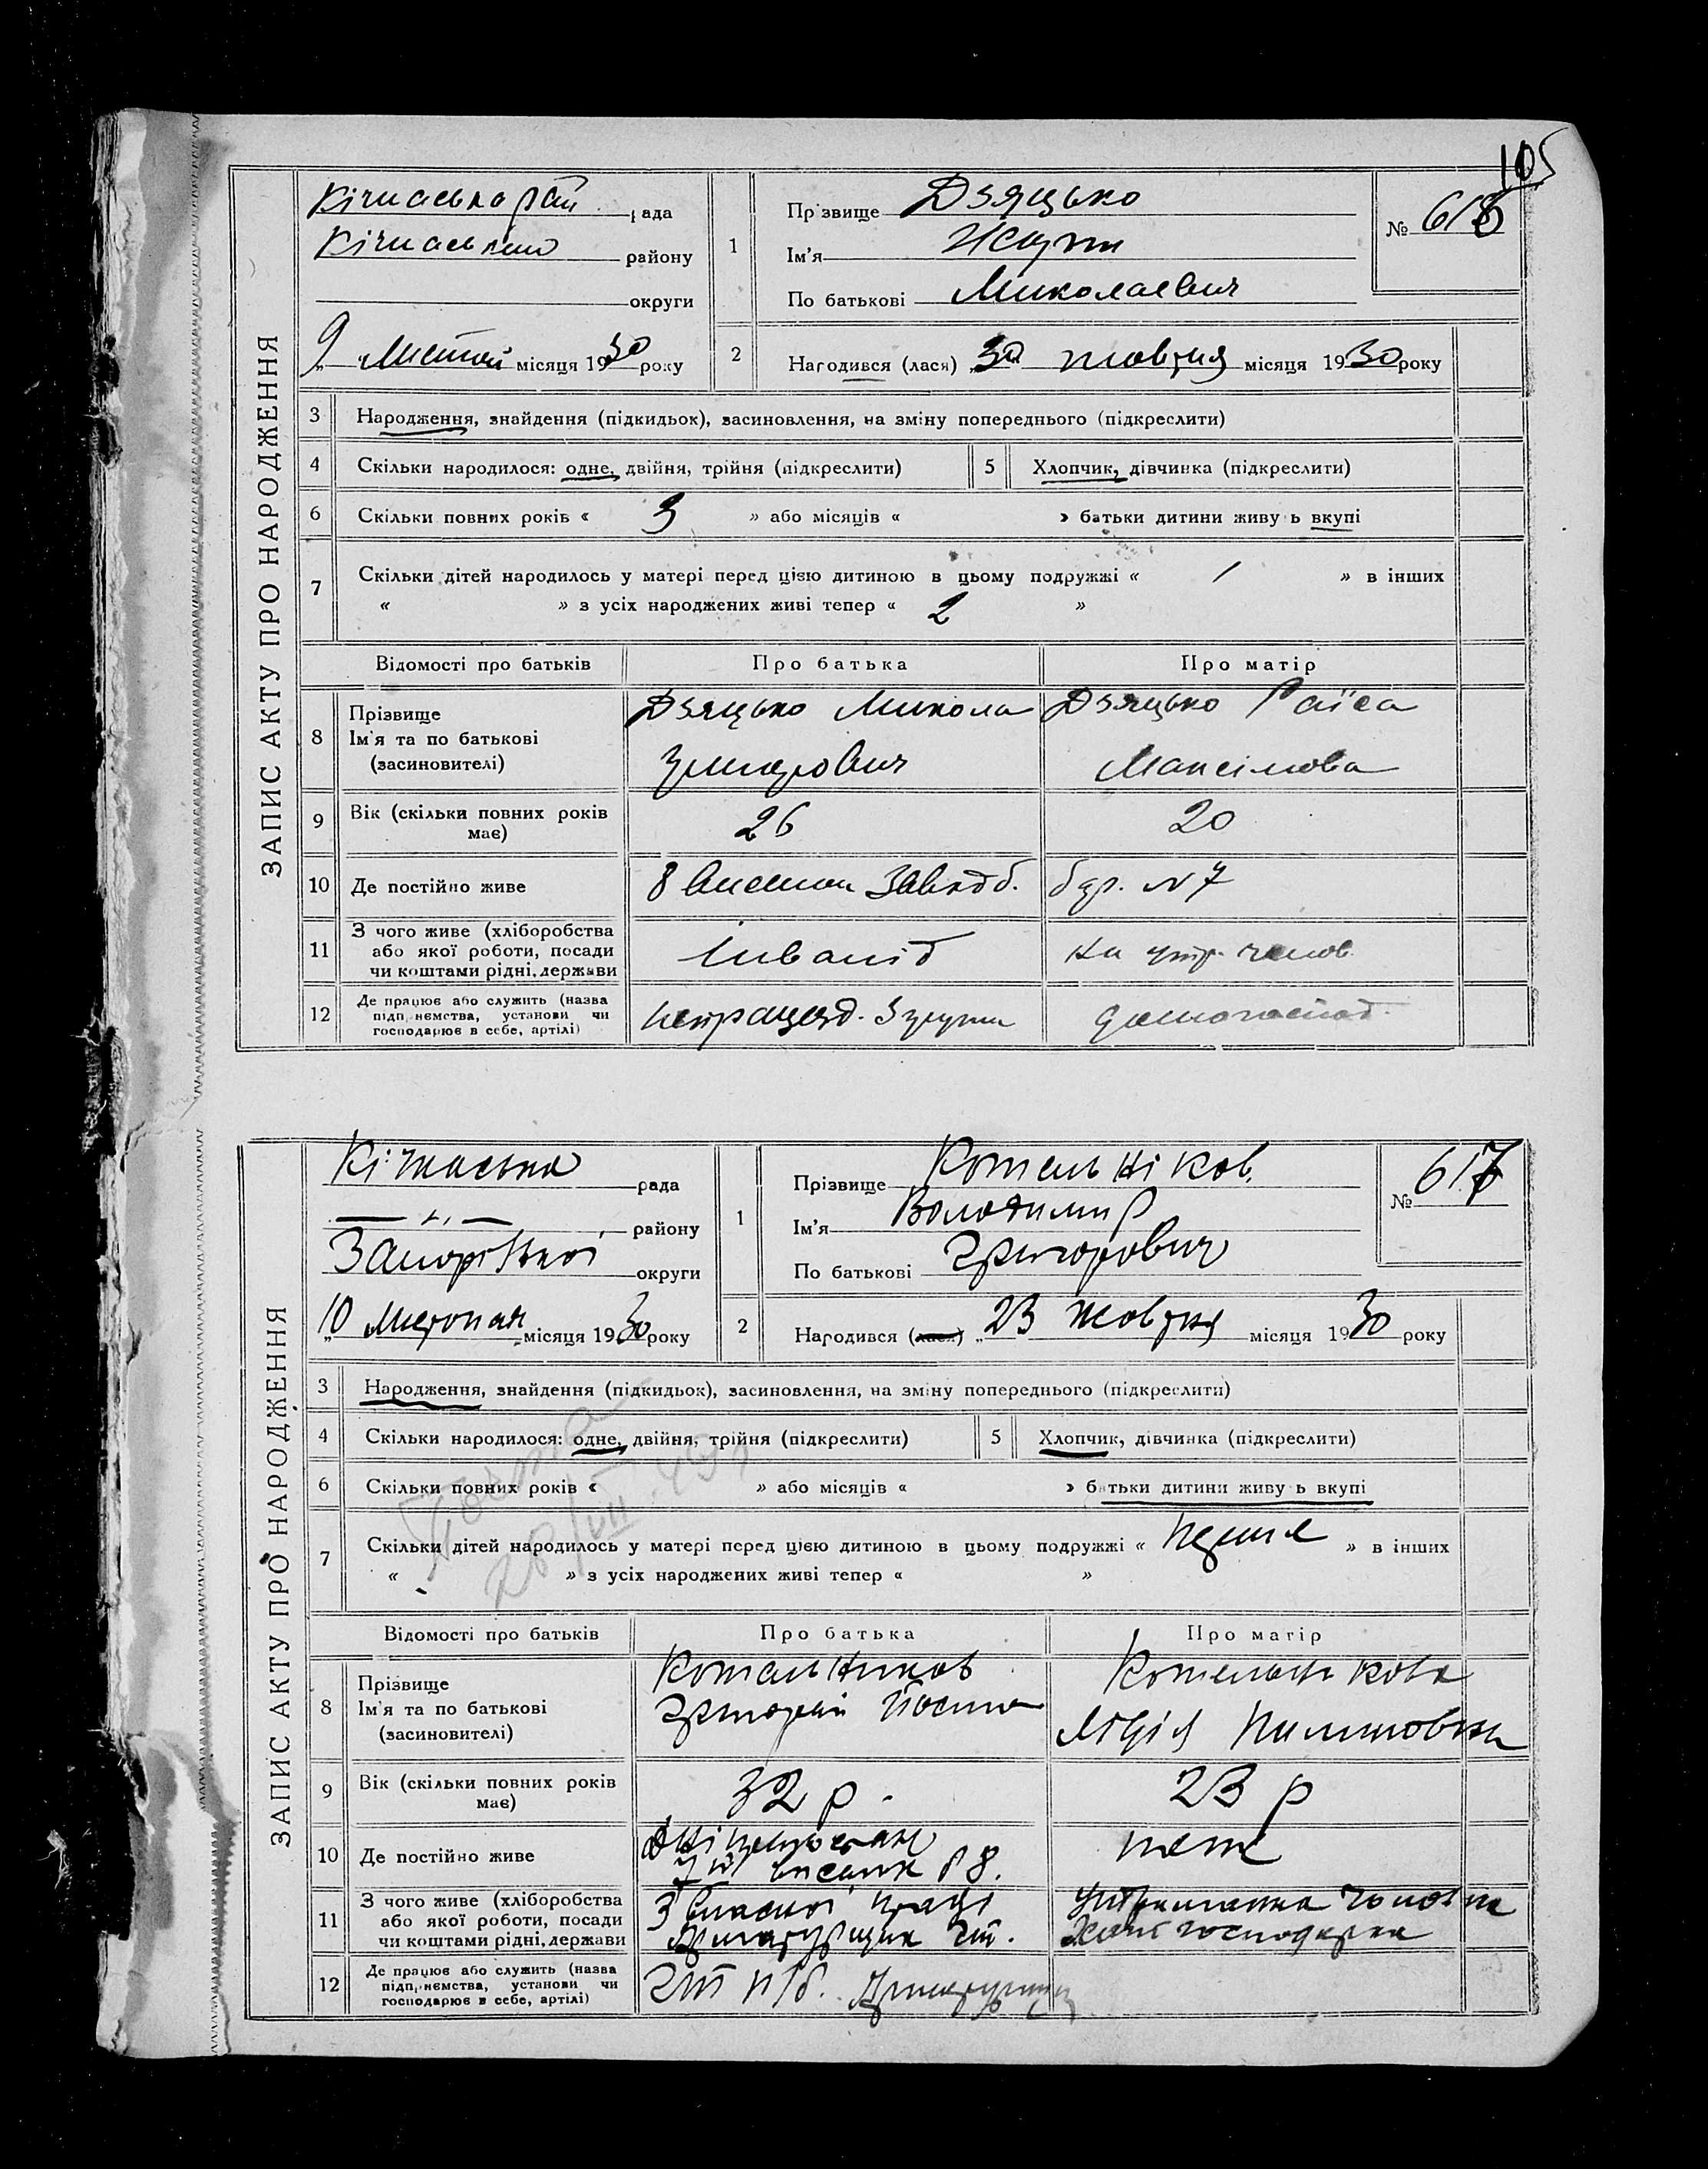 105
ЗАПИС АКТУ ПРО НАРОДЖЕННЯ
Кічкаська рай рада
Кічкаського району
округи
„9 Листоп місяця 1930 року
1
Прізвище Дзяцько
Ім'я
По батькові Миколаевич
№ 616
2
Народився (лася) „30 жовтня місяця 1930 року
3 Народження, знайдення (підкидьок), засиновлення, на зміну попереднього (підкреслити)
4 Скільки народилося: одне, двійня, трійня (підкреслити)
5 Хлопчик, дівчинка (підкреслити)
6 Скільки повних років « 3 » або місяців « » батьки дитини живуть вкупі
7 Скільки дітей народилось у матері перед цією дитиною в цьому подружжі « 1 » в інших
« » з усіх народжених живі тепер « 2 »
Відомості про батьків Про батька Про матір
8 Прізвище
Ім'я та по батькові
(засиновителі)
Дзяцько Микола
Дзяцько Раїса
Максімовна
9 Вік (скільки повних років має) 26 20
10 Де постійно живе 8 висилок б. бур. №7
11 З чого живе (хліборобства
або якої роботи, посади
чи коштами рідні, держави
Інвалід
на утр. чолов.
12 Де працює або служить (назва
підприємства, установи чи
господарює в себе, артілі)
непрацезд. 3 групи
домогоспод.
ЗАПИС АКТУ ПРО НАРОДЖЕННЯ
Кічкаська рада
— „ — району
Запорізької округи
„10 Листопад місяця 1930 року
1
Прізвище Котельніков
Ім'я Володимир
По батькові Григорович
№ 617
2
Народився (лася) „23 жовтня місяця 1930 року
3 Народження, знайдення (підкидьок), засиновлення, на зміну попереднього (підкреслити)
4 Скільки народилося: одне, двійня, трійня (підкреслити)
5 Хлопчик, дівчинка (підкреслити)
6 Скільки повних років « » або місяців « » батьки дитини живуть вкупі
7 Скільки дітей народилось у матері перед цією дитиною в цьому подружжі « перше » в інших
« » з усіх народжених живі тепер « »
Відомості про батьків Про батька Про матір
8 Прізвище
Ім'я та по батькові
(засиновителі)
Котельников
Григорій
Котельнікова
Лідія Пилиповна
9 Вік (скільки повних років має) 32 р. 23 р
10 Де постійно живе
висилк б 8.
теж
11 З чого живе (хліборобства
або якої роботи, посади
чи коштами рідні, держави
З власної праці
Арматурщик
Утриманка чоловіка
Хатн господарка
12 Де працює або служить (назва
підприємства, установи чи
господарює в себе, артілі)
Арматурщик